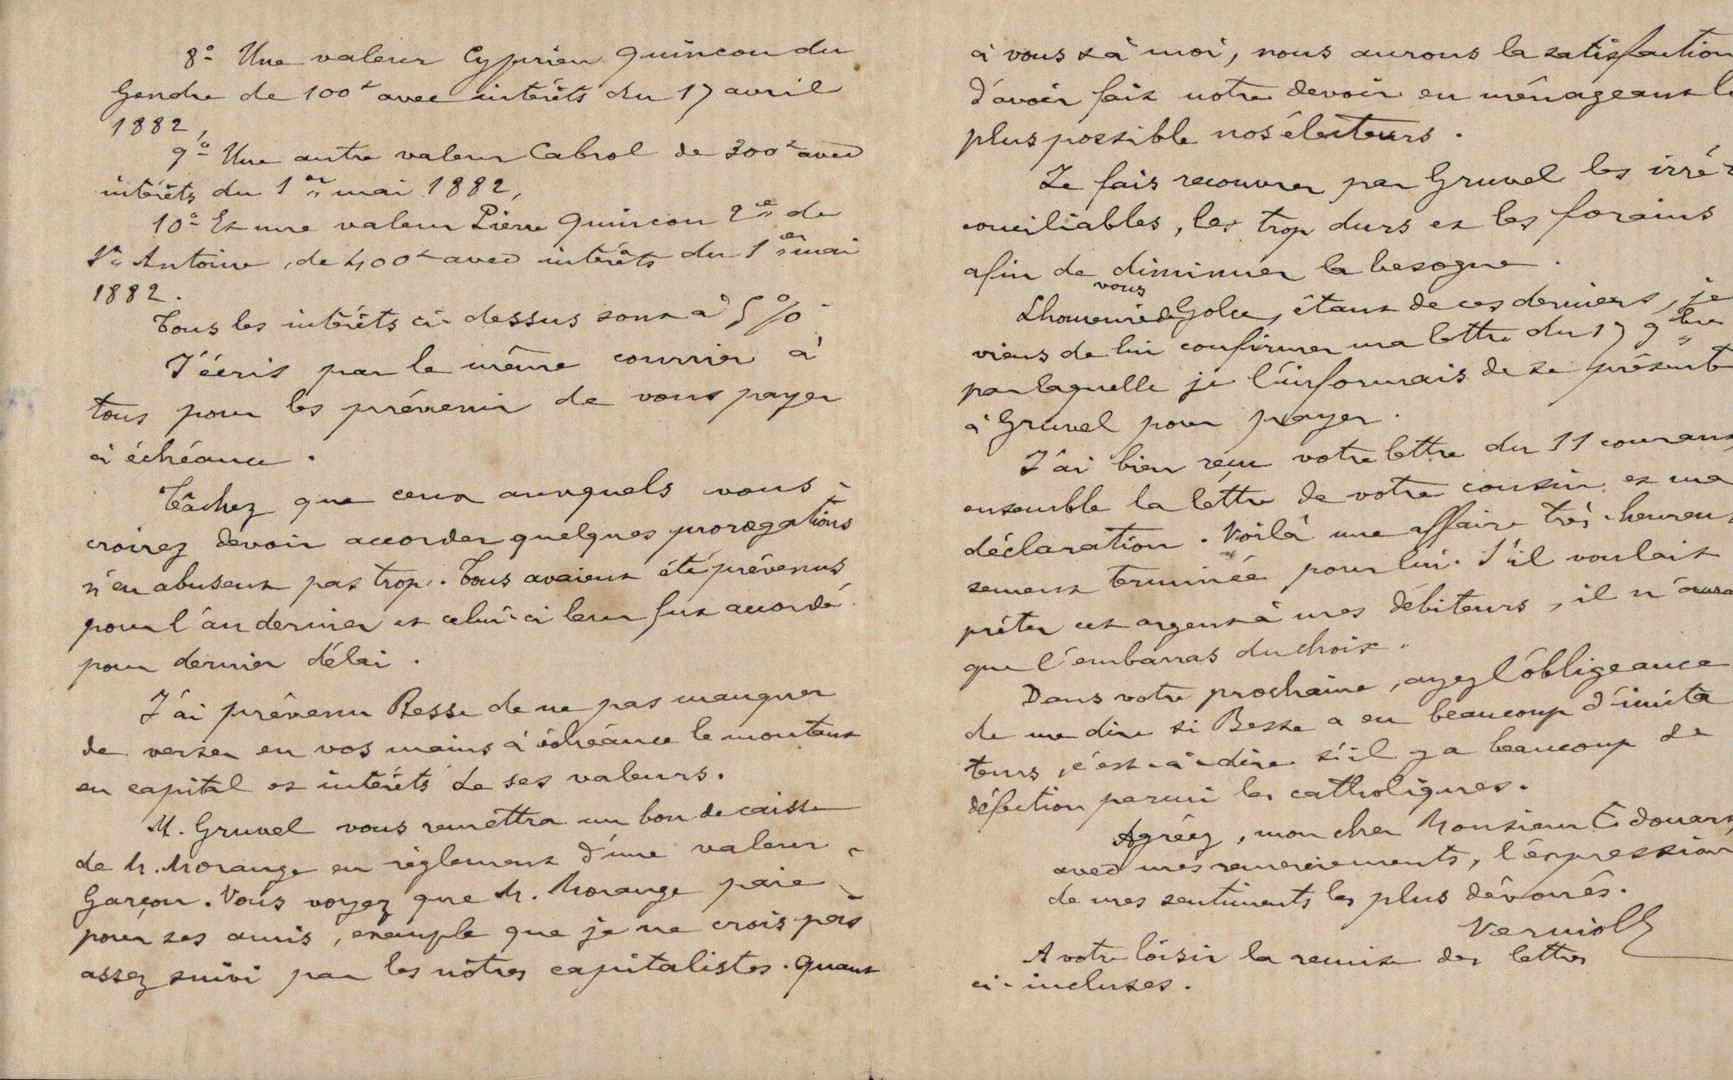 8° Une valeur Cyprien Quincou du
Gendre de 100f avec intérêts du 17 avril
1882,
9° Une autre valeur Cabrol de 300f avec
intérêts du 1er mai 1882,
10° Et une valeur Pierre Quincou 2e de
St Antoine, de 400f avec intérêts du 1er mai
1882.
Tous les intérêts ci-dessus sont à 5%.
J'écris par le même courrier à
tous pour les prévenir de vous payer
à échéance.
Tâchez que ceux auxquels vous
croirez devoir accorder quelques prorogations
n'en abusent pas trop. Tous avaient été prévenus
pour l'an dernier et celui-ci leur fut accordé
pour dernier délai.
J'ai prévenu Besse de ne pas manquer
de verser en vos mains à échéance le montant
en capital et intérêts de ses valeurs.
M. Gruvel vous remettra un bon de caisse
de M. Morange en règlement d'une valeur
Garçon. Vous voyez que M. Morange paie
pour ses amis, exemple que je ne crois pas
assez suivi par les nôtres capitalistes. Quant
à vous & à moi, nous aurons la satisfaction
d'avoir fait notre devoir en ménageant le
plus possible nos électeurs.
Je fais recouvrer par Gruvel les irré-
conciliables, les trop durs et les forains
afin de diminuer la besogne.
de vous étant de ces derniers, je
viens de lui confirmer ma lettre du 17 9bre
par laquelle je l'informais de se présenter
à Gruvel pour payer.
J'ai bien reçu votre lettre du 11 courant,
ensemble la lettre de votre cousin et ma
déclaration. Voilà une affaire très heureu-
sement terminée pour lui. S'il voulait
prêter cet argent à mes débiteurs, il n'aura
que l'embarras du choix.
Dans votre prochaine, ayez l'obligeance
de me dire si Besse a eu beaucoup d'imita
teurs, c'est-à-dire s'il y a beaucoup de
défection parmi les catholiques.
Agréez, mon cher Monsieur Edouard,
avec mes remerciements, l'expression
de mes sentiments les plus dévoués.
Verniolle
A votre loisir la remise des lettres
ci-incluses.